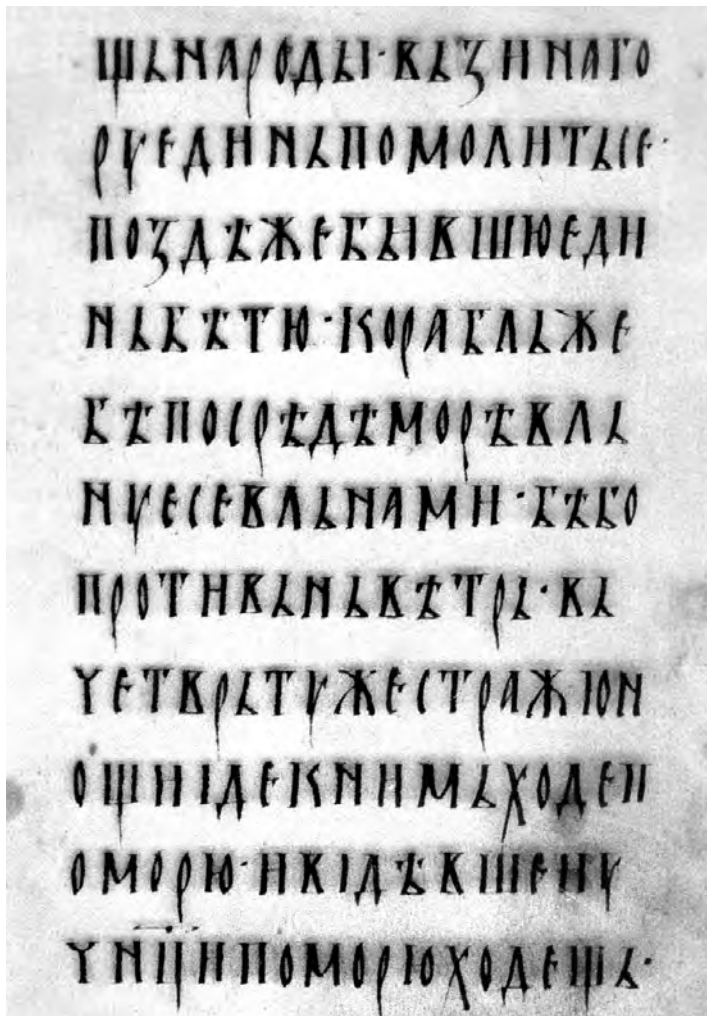 щьнароды·вьзинаго
руединьпомолитьсе·
поздѣжебывшюеди
ньбѣтю·корабльже
бѣпосрѣдѣморѣвль
нуесевльнами·бѣбо
противьньвѣтрь·вь
четврьтужестражюн
ощиідекнимьходеп
оморю·ивідѣвшеиу
чн҃ципоморюходещь·